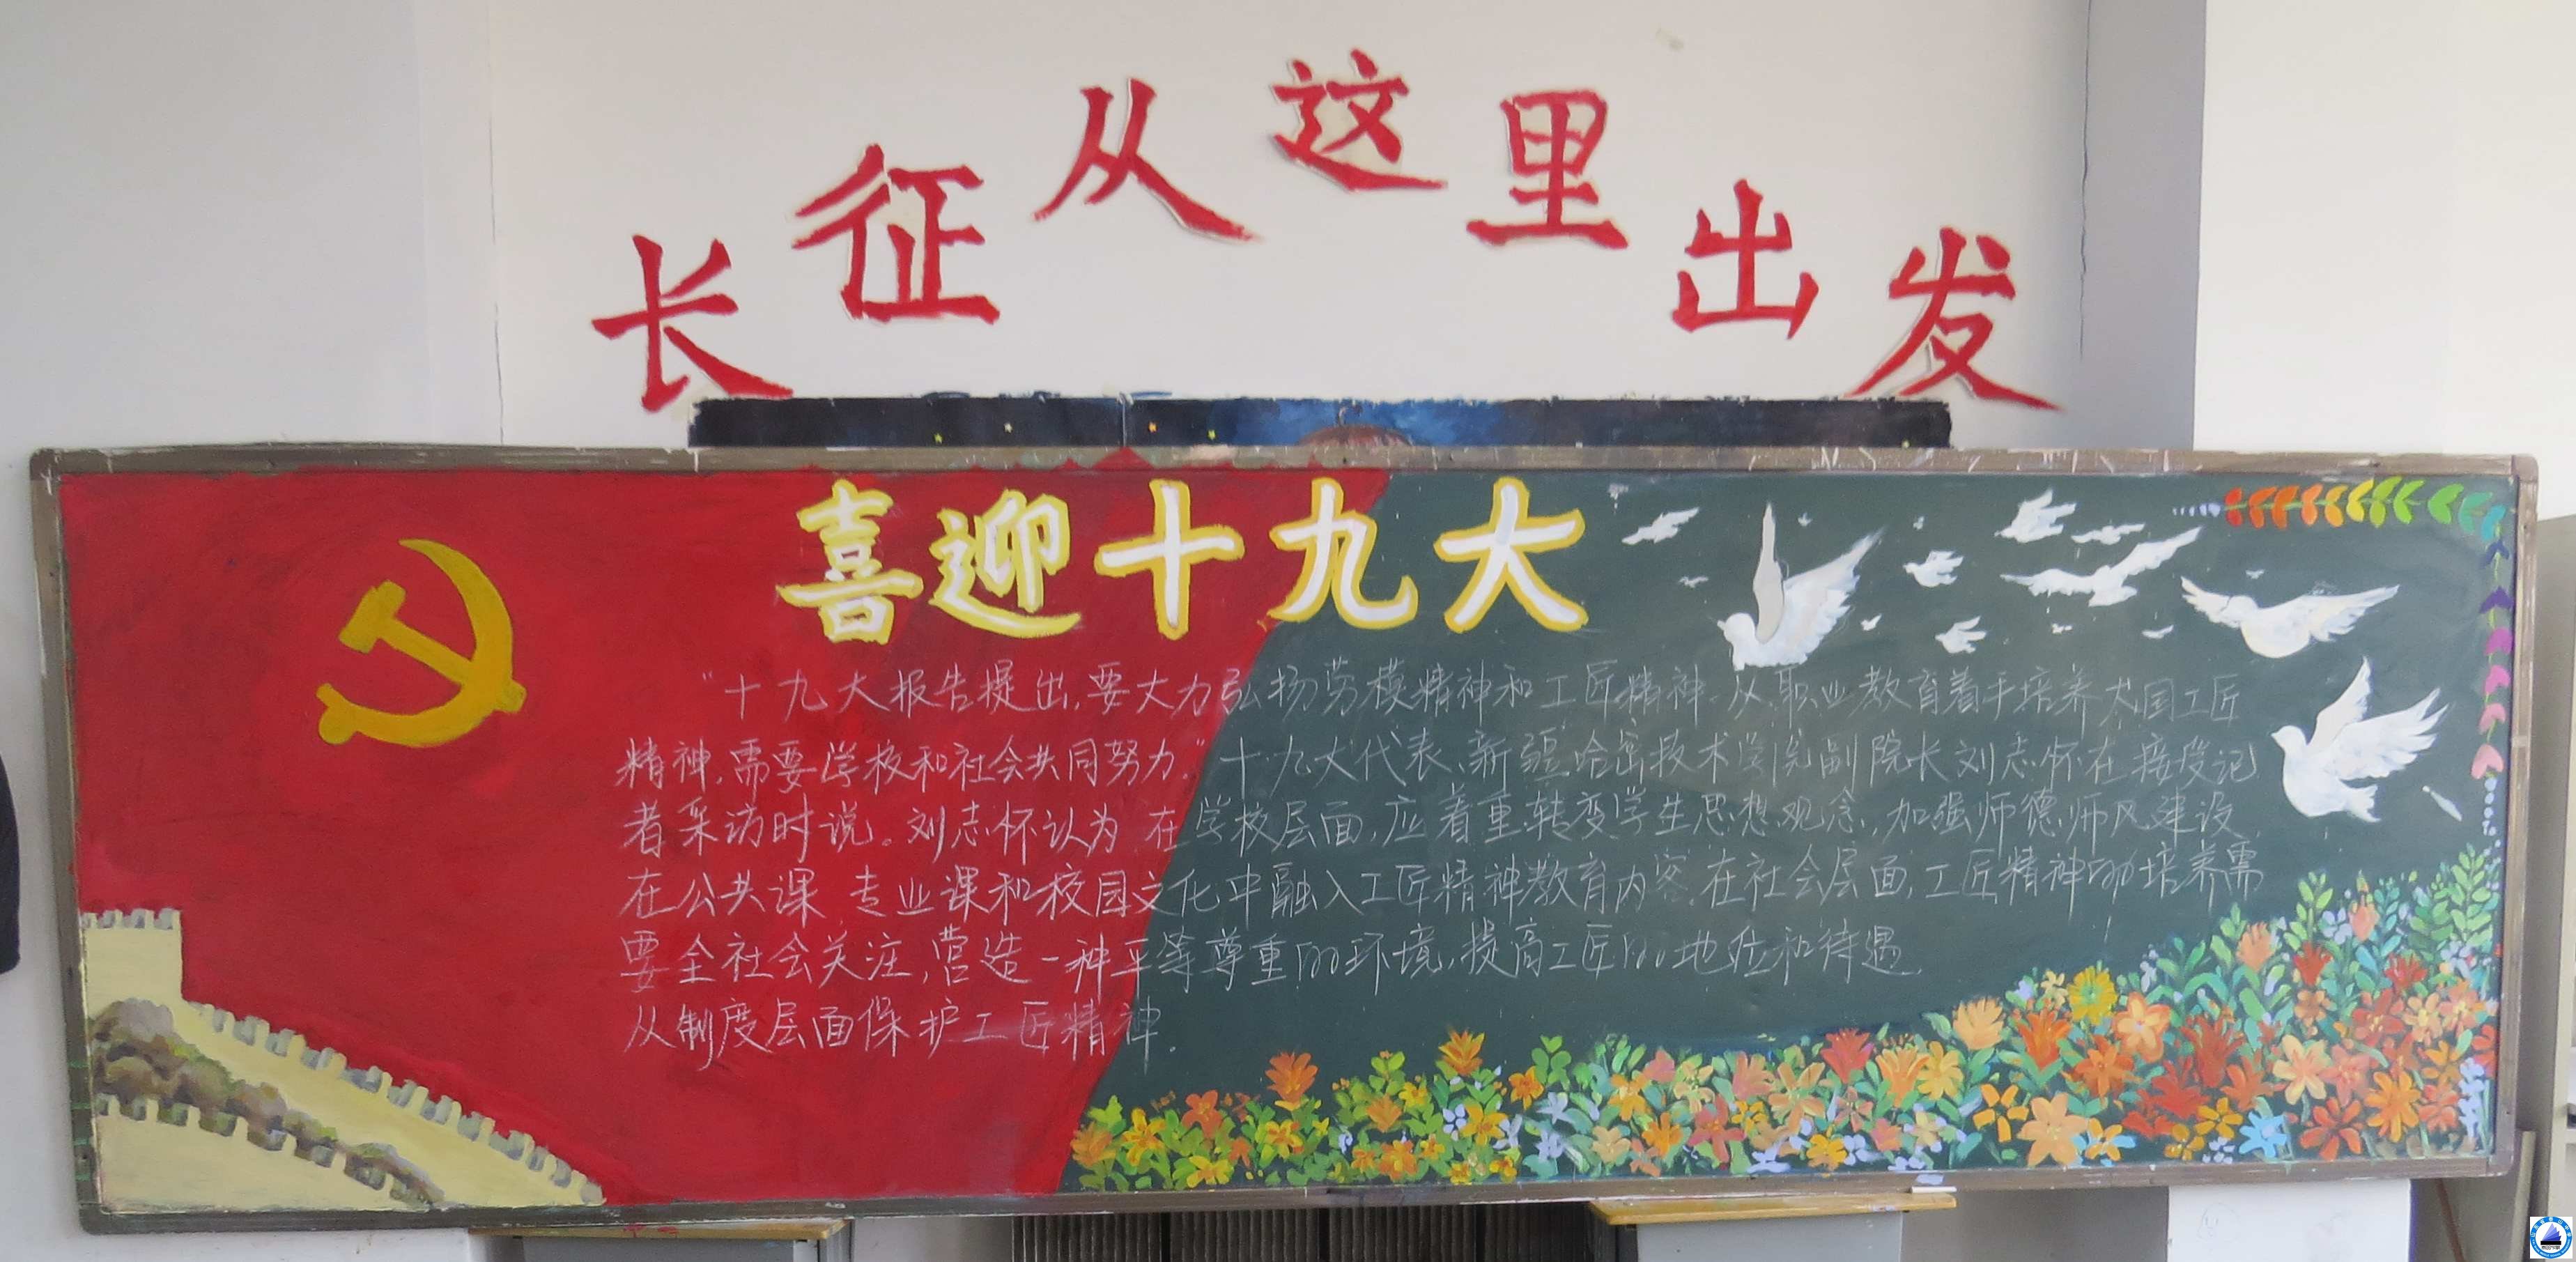 长征从这里出发
喜迎十九大
“十九大报告提出,要大力弘扬劳模精神和工匠精神.从职业教育着手培养大国工匠
精神,需要学校和社会共同努力.”十九大代表、新疆哈密技术学院副院长刘志怀在接受记
者采访时说。刘志怀认为 在学校层面,应着重转变学生思想观念,加强师德师风建设,
在公共课 专业课和校园文化中融入工匠精神教育内容.在社会层面,工匠精神的培养需
要全社会关注,营造一种平等尊重的环境,提高工匠的地位和待遇,
从制度层面保护工匠精神.